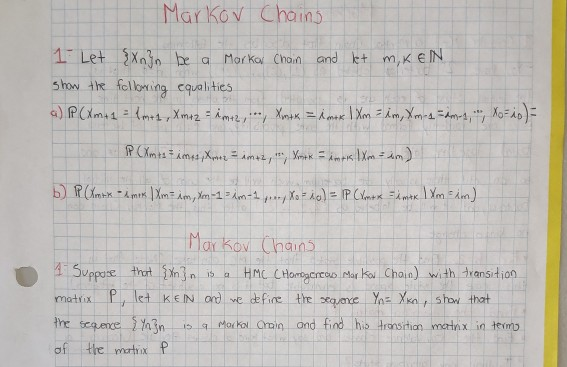 Markov Chains
1- Let {Xn}n be a Markov Chain and let m,K ∈ ℕ
show the following equalities
a) ℙ(Xm+1 = im+1, Xm+2 = im+2, ..., Xm+k = im+k | Xm = im, Xm-1 = im-1, ..., X0 = i0) =
ℙ(Xm+1 = im+1, Xm+2 = im+2, ..., Xm+k = im+k | Xm = im)
b) ℙ(Xm+k = im+k | Xm = im, Xm-1 = im-1, ..., X0 = i0) = ℙ(Xm+k = im+k | Xm = im)
Markov Chains
1- Suppose that {Xn}n is a HMC (Homogeneous Markov Chain) with transition
matrix P, let K ∈ N and we define the sequence Yn = XKn, show that
the sequence {Yn}n is a Markov Chain and find his transition matrix in terms
of the matrix P